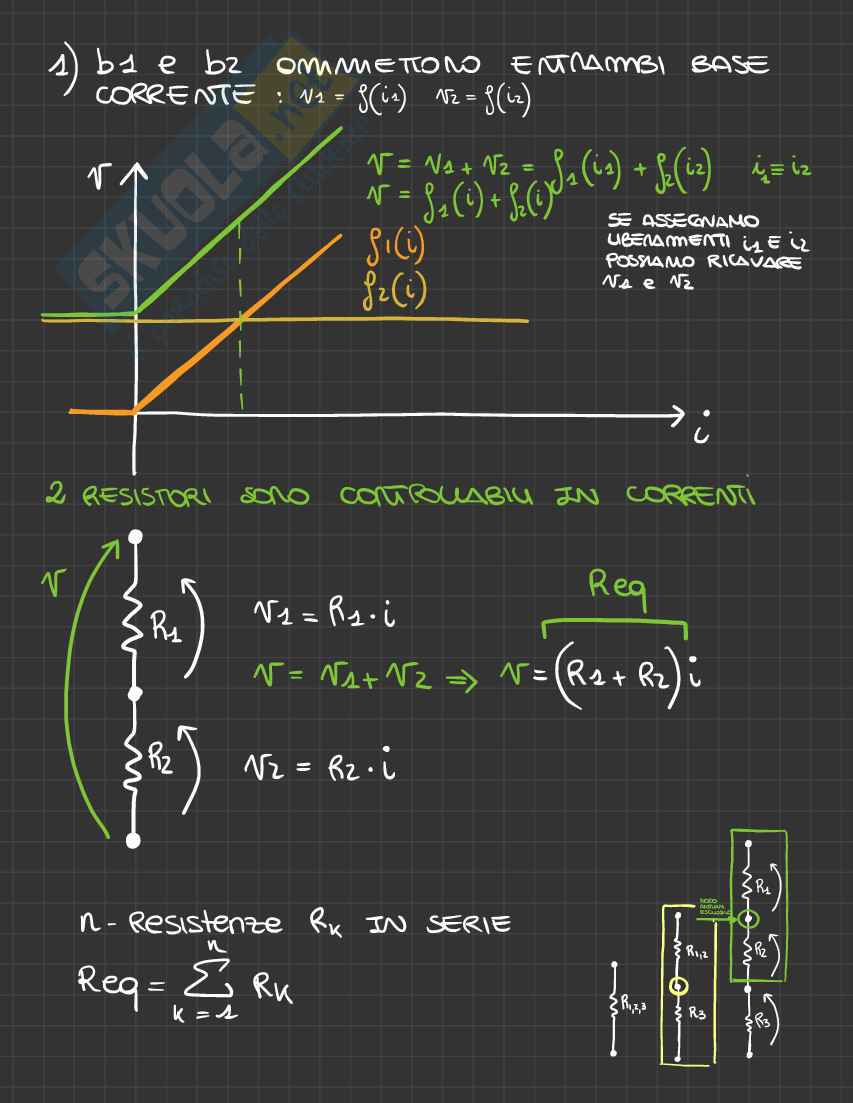 1) b1 e b2 OMMETTONO ENTRAMBI BASE
CORRENTE : v1 = f(i1) v2 = f(i2)
SKUOLA.net
v
v = v1 + v2 = f1(i1) + f2(i2) i1 ≡ i2
v = f1(i) + f2(i)
SE ASSEGNAMO
LIBERAMENTI i1 E i2
POSSIAMO RICAVARE
v1 e v2
f1(i)
f2(i)
i
2 RESISTORI SONO CONTROLLABILI IN CORRENTI
v
R1
v1 = R1 · i
Req
v = v1 + v2 ⇒ v = (R1 + R2) i
R2
v2 = R2 · i
n - Resistenze RK IN SERIE
Req = n Σ k = 1 RK
R1
R2
R3
R1,2
R3
R1,2,3